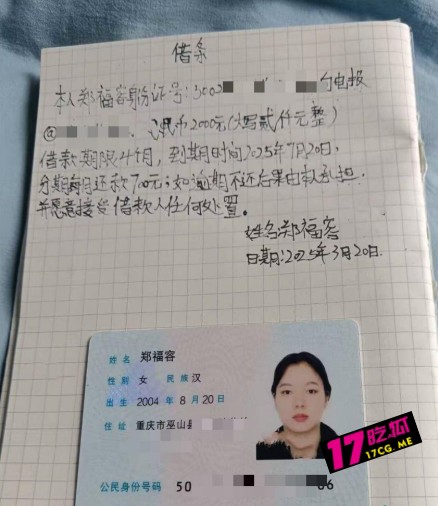 借条
本人郑福容身份证号:5002 向电报
@ 民币2000元(大写贰仟元整)
借款期限4个月,到期日时间2025年7月20日,
分期每月还款700元;如逾期不还后果由本人承担,
并愿意接受借款人任何处置。
姓名:郑福容
日期:2025年3月20日.
姓名 郑福容
性别 女 民族 汉
出生 2004 年 8 月 20 日
住址 重庆市巫山县
公民身份号码 50 86
17吃瓜
17CG.ME